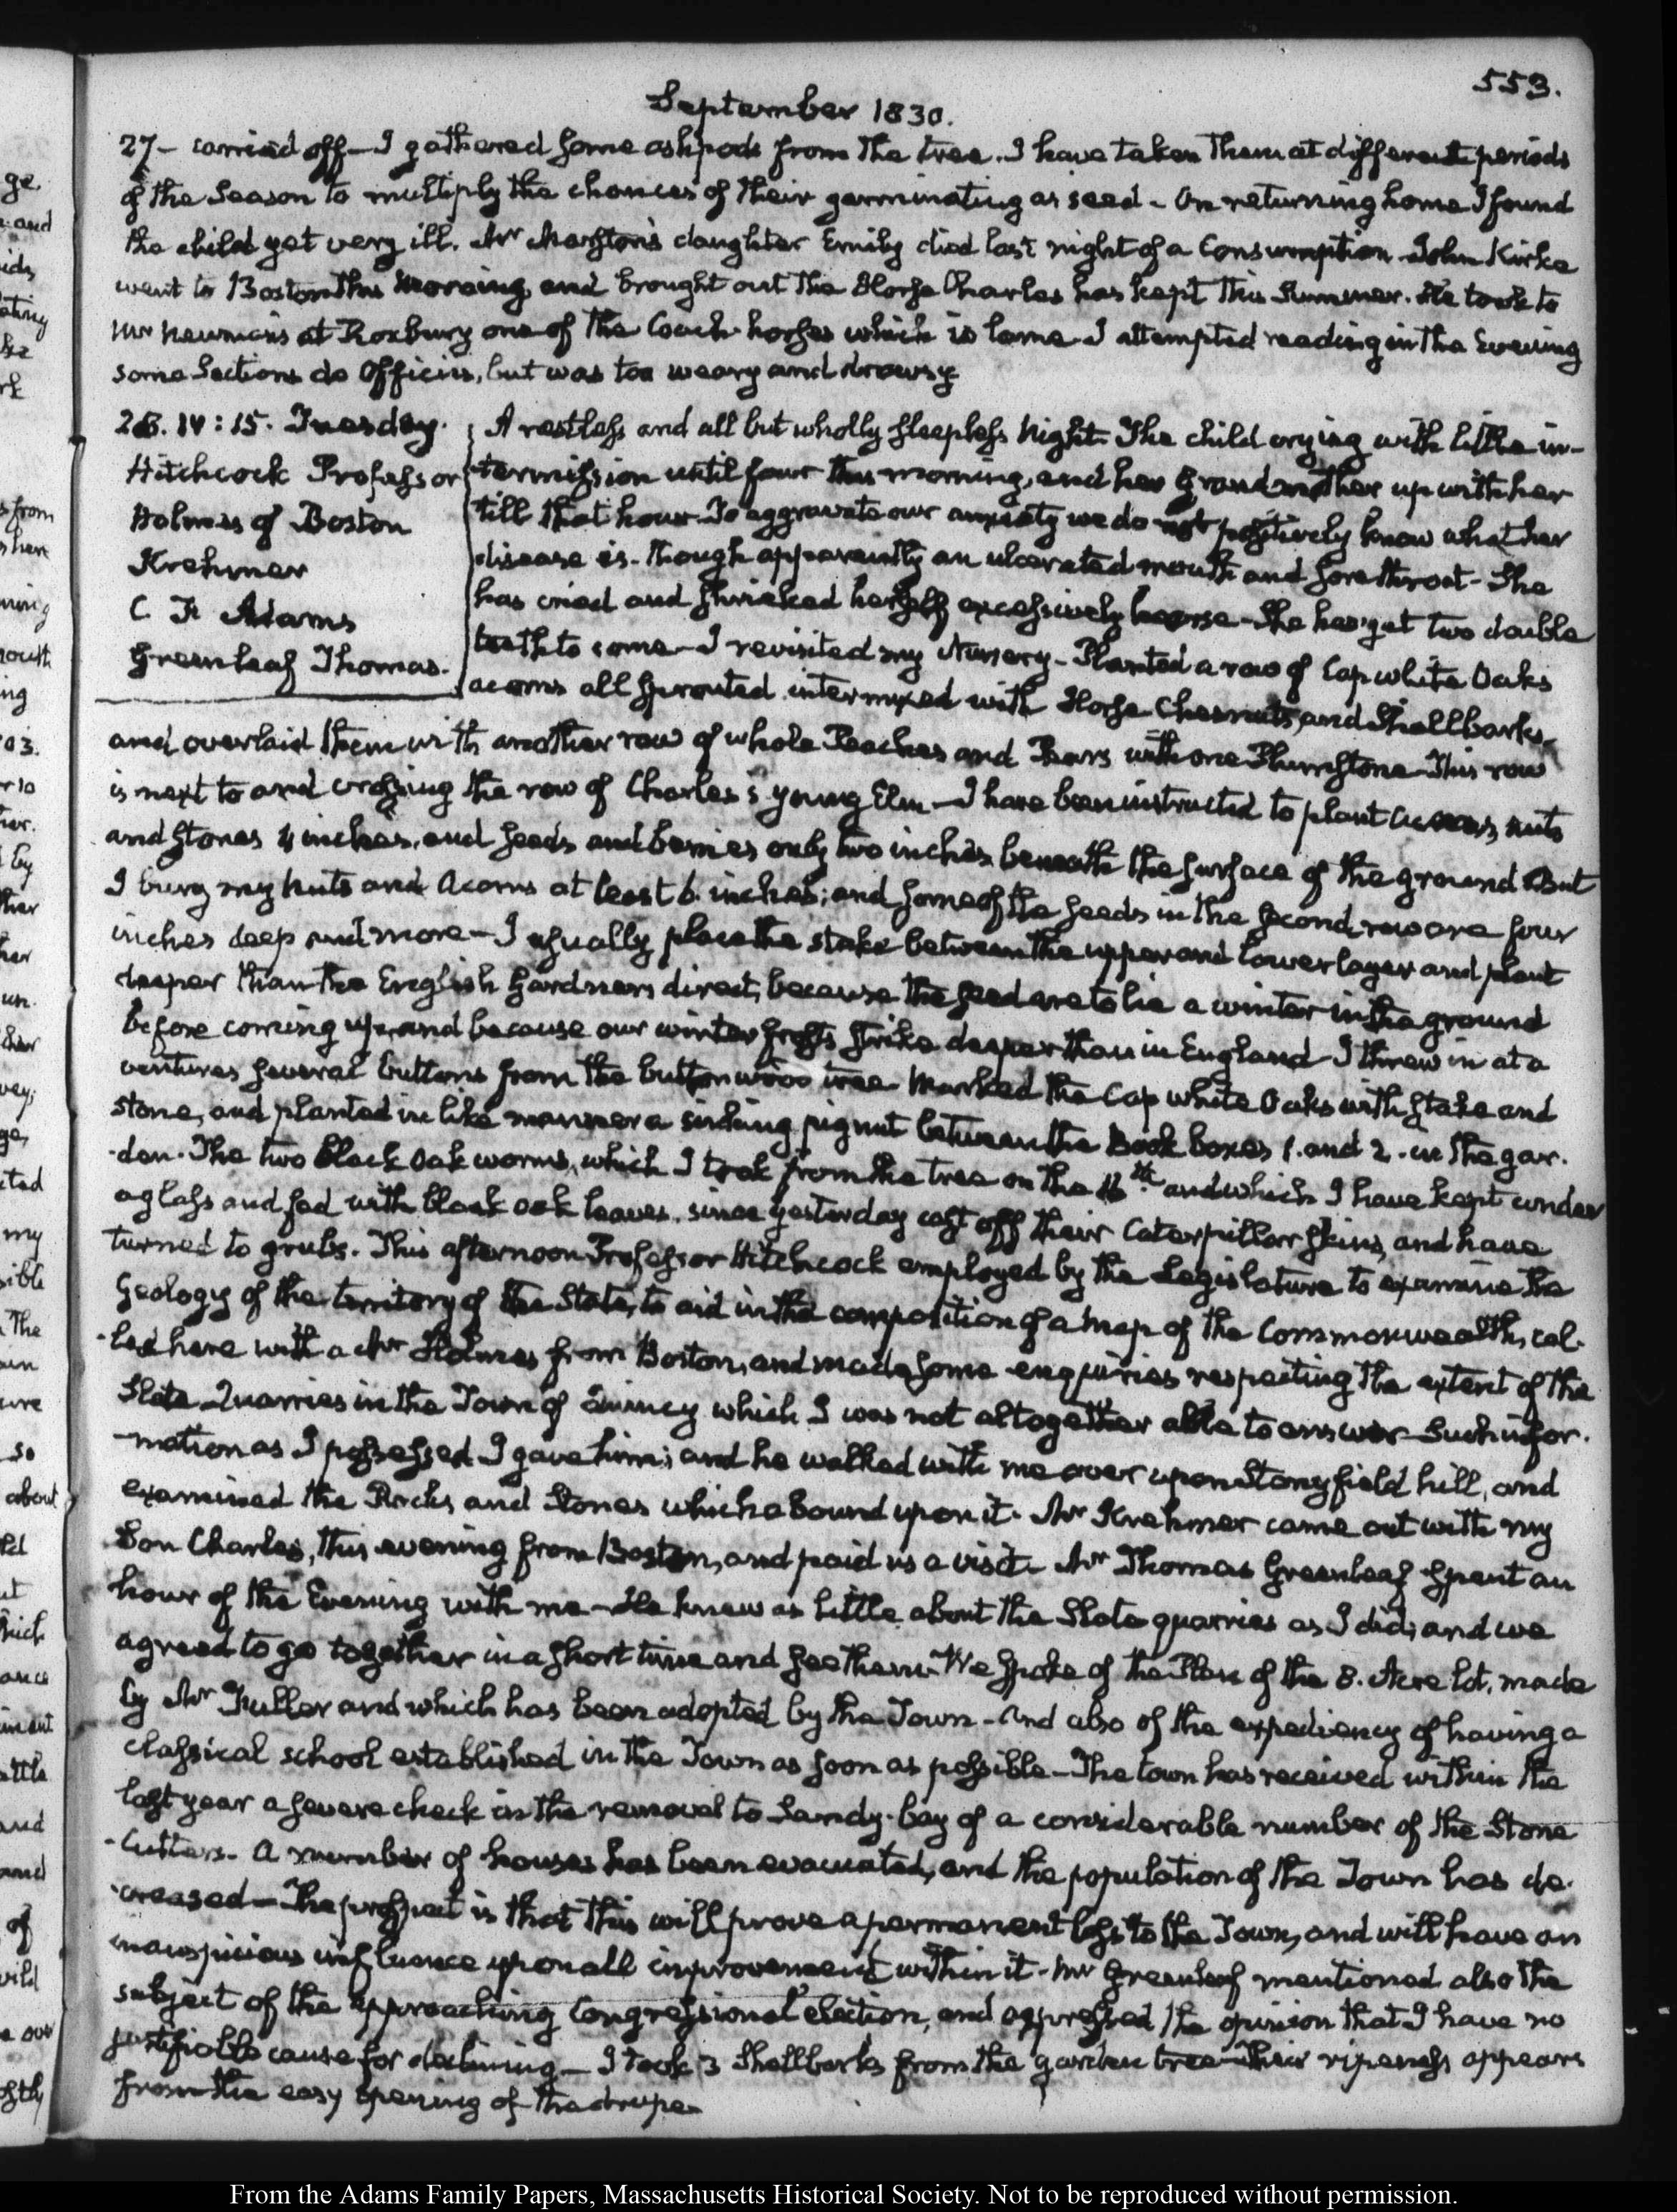 553.
September 1830.
27 - carried off - I gathered some ashpods from the tree. I have taken them at different periods
of the Season to multiply the chances of their germinating as seed - On returning home I found
the child yet very ill. Mr Marston's daughter Emily died last night of a Consumption - John Kirke
went to Boston this Morning, and brought out the Horse Charles has kept this Summer. He took to
Mr Newman's at Roxbury one of the Coach-horses which is lame - I attempted reading in the Evening
some Sections de Officiis, but was too weary and drowsy
28. IV:15. Tuesday.
Hitchcock Professor
Holmes of Boston
Krehmer
C. F. Adams
Greenleaf Thomas.
A restless and all but wholly sleepless Night - The child crying with little in-
termission until four this morning, and her Grandmother up with her
till that hour. To aggravate our anxiety we do not positively know what her
disease is - though apparently an ulcerated mouth and sore throat - She
has cried and shrieked herself excessively hoarse - She has yet two double
teeth to come - I revisited my Nursery - Planted a row of Cap white Oaks
acorns all sprouted intermixed with Horse Chesnuts, and Shellbarks,
and overlaid them with another row of whole Peaches and Pears with one Plumstone - This row
is next to and crossing the row of Charles's young Elm - I have been instructed to plant acorns, nuts
and stones 4 inches, and seeds and berries only two inches beneath the surface of the ground - But
I bury my nuts and Acorns at least 6 inches; and some of the seeds in the second row are four
inches deep and more - I usually place the stake between the upper and lower layer and plant
deeper than the English Gardners direct, because the seed are to lie a winter in the ground
before coming up, and because our winter frosts strike deeper than in England - I threw in at a
venture several buttons from the button wood tree - Marked the Cap white Oaks with stake and
stone, and planted in like manner a pignut between the Book boxes 1. and 2. in the gar-
-den. The two black Oak worms, which I took from the tree on the 16th. and which I have kept under
a glass and fed with black oak leaves, since yesterday cast off their Caterpillar skins, and have
turned to grubs. This afternoon Professor Hitchcock employed by the Legislature to examine the
Geology of the territory of the State, to aid in the composition of a Map of the Commonwealth, cal-
-led here with a Mr Holmes from Boston, and made some enquiries respecting the extent of the
Slate Quarries in the Town of Quincy which I was not altogether able to answer - Such infor-
-mation as I possessed I gave him; and he walked with me over upon Stonyfield hill, and
examined the Rocks and Stones which abound upon it. Mr Krehmer came out with my
Son Charles, this evening from Boston, and paid us a visit - Mr Thomas Greenleaf spent an
hour of the Evening with me - He knew as little about the Slate quarries as I did; and we
agreed to go together in a short time and see them - We spoke of the Plan of the 8. Acre lot, made
by Mr Fuller and which has been adopted by the Town - And also of the expediency of having a
classical school established in the Town as soon as possible - The town has received within the
last year a severe check in the removal to Sandy-bay of a considerable number of the Stone
-Cutters. A number of houses has been evacuated, and the population of the Town has de-
-creased - The prospect is that this will prove a permanent loss to the Town, and will have an
inauspicious influence upon all improvement within it - Mr Greenleaf mentioned also the
subject of the approaching Congressional election, and expressed the opinion that I have no
justifiable cause for declining - I took 3 Shellbarks from the garden tree - Their ripeness appears
from the easy opening of the drupe -
From the Adams Family Papers, Massachusetts Historical Society. Not to be reproduced without permission.